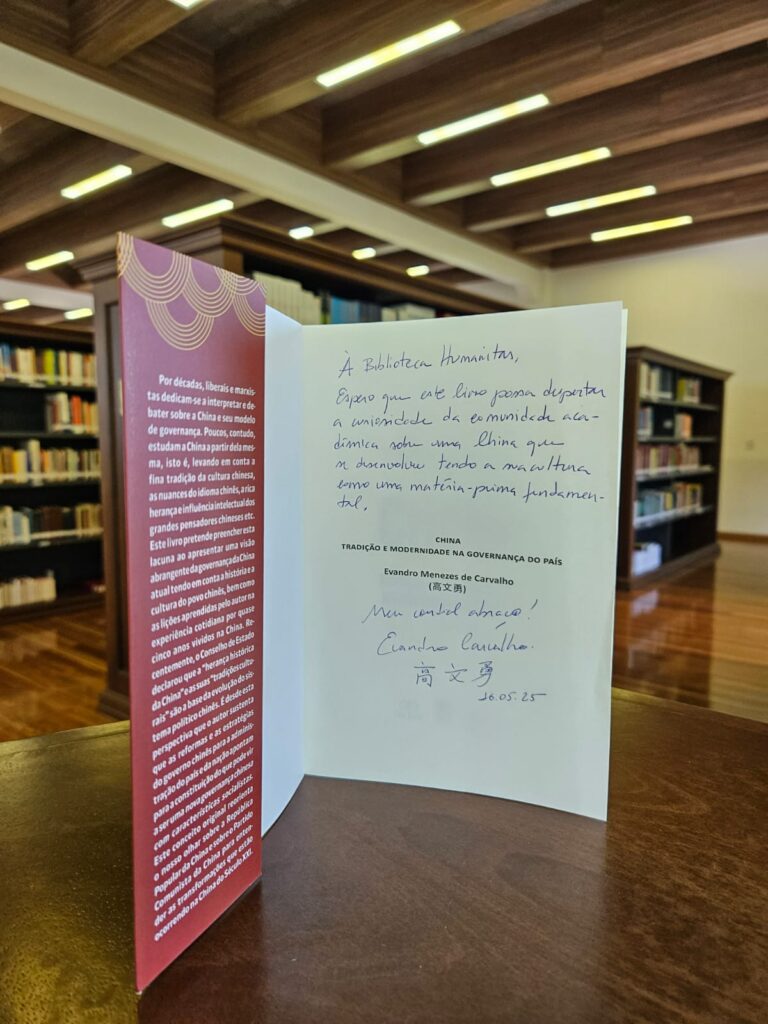 Por décadas, liberais e marxis-
tas dedicam-se a interpretar e de-
bater sobre a China e seu modelo
de governança. Poucos, contudo,
estudam a China a partir dela mes-
ma, isto é, levando em conta a
fina tradição da cultura chinesa,
as nuances do idioma chinês, a rica
herança e influência intelectual dos
grandes pensadores chineses etc.
Este livro pretende preencher esta
lacuna ao apresentar uma visão
abrangente da governança da China
atual tendo em conta a história e a
cultura do povo chinês, bem como
as lições aprendidas pelo autor na
experiência cotidiana por quase
cinco anos vividos na China. Re-
centemente, o Conselho de Estado
declarou que a "herança histórica
da China" e as suas "tradições cultu-
rais" são a base da evolução do sis-
tema político chinês. É desde esta
perspectiva que o autor sustenta
que as reformas e as estratégias
do governo chinês para a adminis-
tração do país e da nação apontam
para a constituição do que pode vir
a ser uma nova governança chinesa
com características socialistas.
Este conceito original reorienta
o nosso olhar sobre a República
Popular da China e sobre o Partido
Comunista da China para enten-
der as transformações que estão
ocorrendo na China do Século XXI.
À Biblioteca Humanitas,
Espero que este livro possa despertar
a curiosidade da comunidade aca-
dêmica sobre uma China que
se desenvolve tendo a sua cultura
como uma matéria-prima fundamen-
tal.
CHINA
TRADIÇÃO E MODERNIDADE NA GOVERNANÇA DO PAÍS
Evandro Menezes de Carvalho
(高文勇)
Meu cordial abraço!
Evandro Carvalho.
高文勇
16.05.25